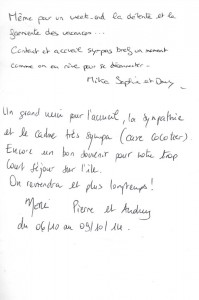 Même pour un week-end la détente et la
farniente des vacances...
Contact et accueil sympas bref un moment
comme on en rêve pour se déconnecter.
Mike Sophie et Dany
Un grand merci par l'accueil, la sympathie
et le cadre très sympa (cave
Encore un bon souvenir pour notre trop
court séjour sur l'île.
On reviendra et plus longtemps !
Merci Pierre et Audrey
du 06/10 au 09/10/14.